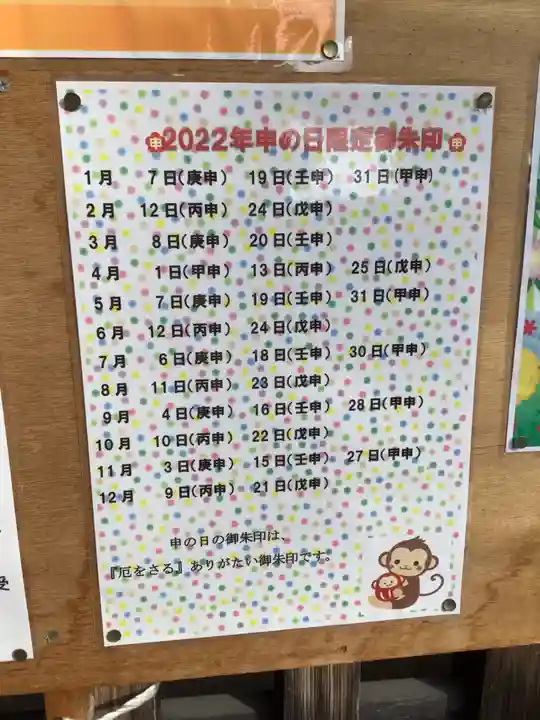 申 2022年申の日限定御朱印 申
1月 7日(庚申) 19日(壬申) 31日(甲申)
2月 12日(丙申) 24日(戊申)
3月 8日(庚申) 20日(壬申)
4月 1日(甲申) 13日(丙申) 25日(戊申)
5月 7日(庚申) 19日(壬申) 31日(甲申)
6月 12日(丙申) 24日(戊申)
7月 6日(庚申) 18日(壬申) 30日(甲申)
8月 11日(丙申) 23日(戊申)
9月 4日(庚申) 16日(壬申) 28日(甲申)
10月 10日(丙申) 22日(戊申)
11月 3日(庚申) 15日(壬申) 27日(甲申)
12月 9日(丙申) 21日(戊申)
申の日の御朱印は、
『厄をさる』ありがたい御朱印です。
受